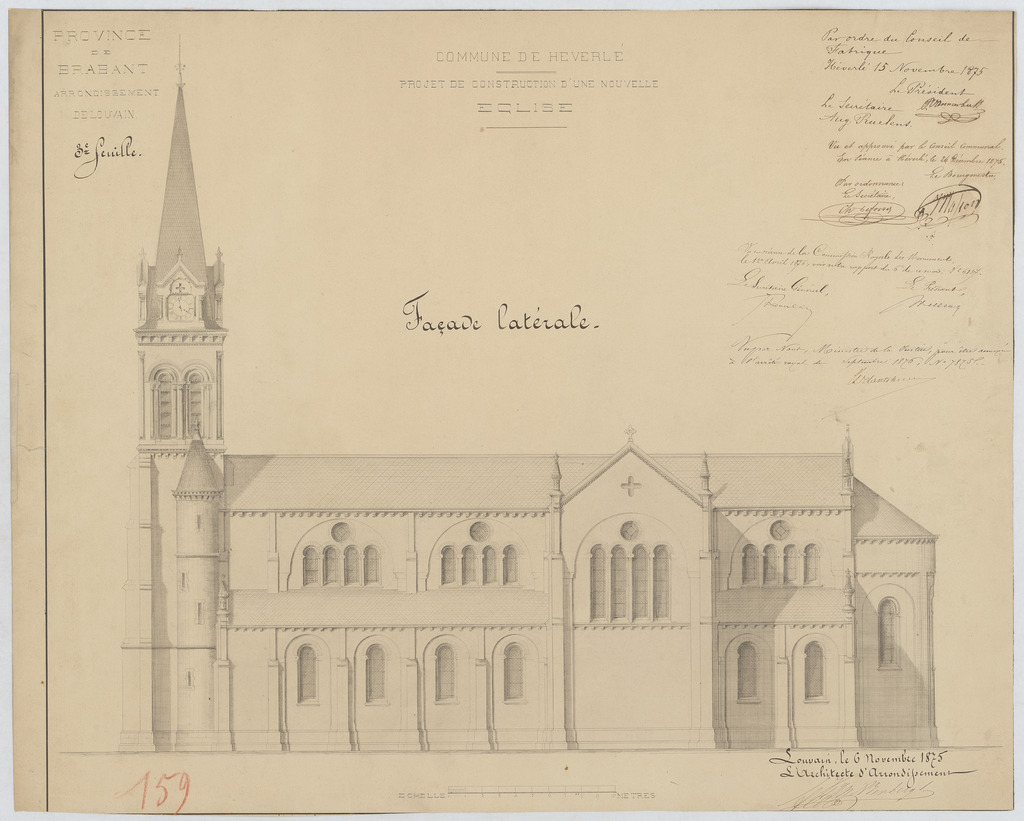 PROVINCE
DE
BRABANT
ARRONDISSEMENT
DE LOUVAIN
3e feuille.
COMMUNE DE HEVERLÉ
PROJET DE CONSTRUCTION D'UNE NOUVELLE
EGLISE
Par ordre du Conseil de
Fabrique
Héverlé 15 Novembre 1875
Le Président
Le Secrétaire
Aug.
Vu et approuvé par le Conseil Communal.
En séance à Héverlé, le 26 Décembre 1875.
Le Bourgmestre,
Par ordonnance:
Le Secrétaire,
de la Commission Royale des Monuments,
le Avril 1876, rapport du 6 de
Le Secrétaire Général,
Le Président,
Vu par Nous, Ministre de la Justice, pour être annexé
à l'arrêté royal du septembre 1876, No
Façade latérale.
Louvain, le 6 Novembre 1875
L'Architecte d'Arrondissement
159
ECHELLE METRES